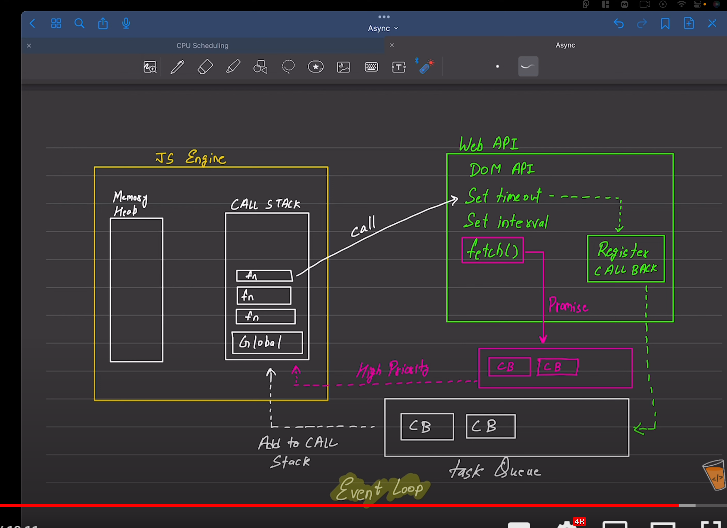 Async
CPU Scheduling
Async
JS Engine
Memory
Heap
CALL STACK
fn
fn
fn
Global
call
Web API
DOM API
Set timeout
Set interval
fetch()
Register
CALL BACK
Promise
CB CB
High Priority
CB CB
Add to CALL
Stack
task Queue
Event Loop
4K